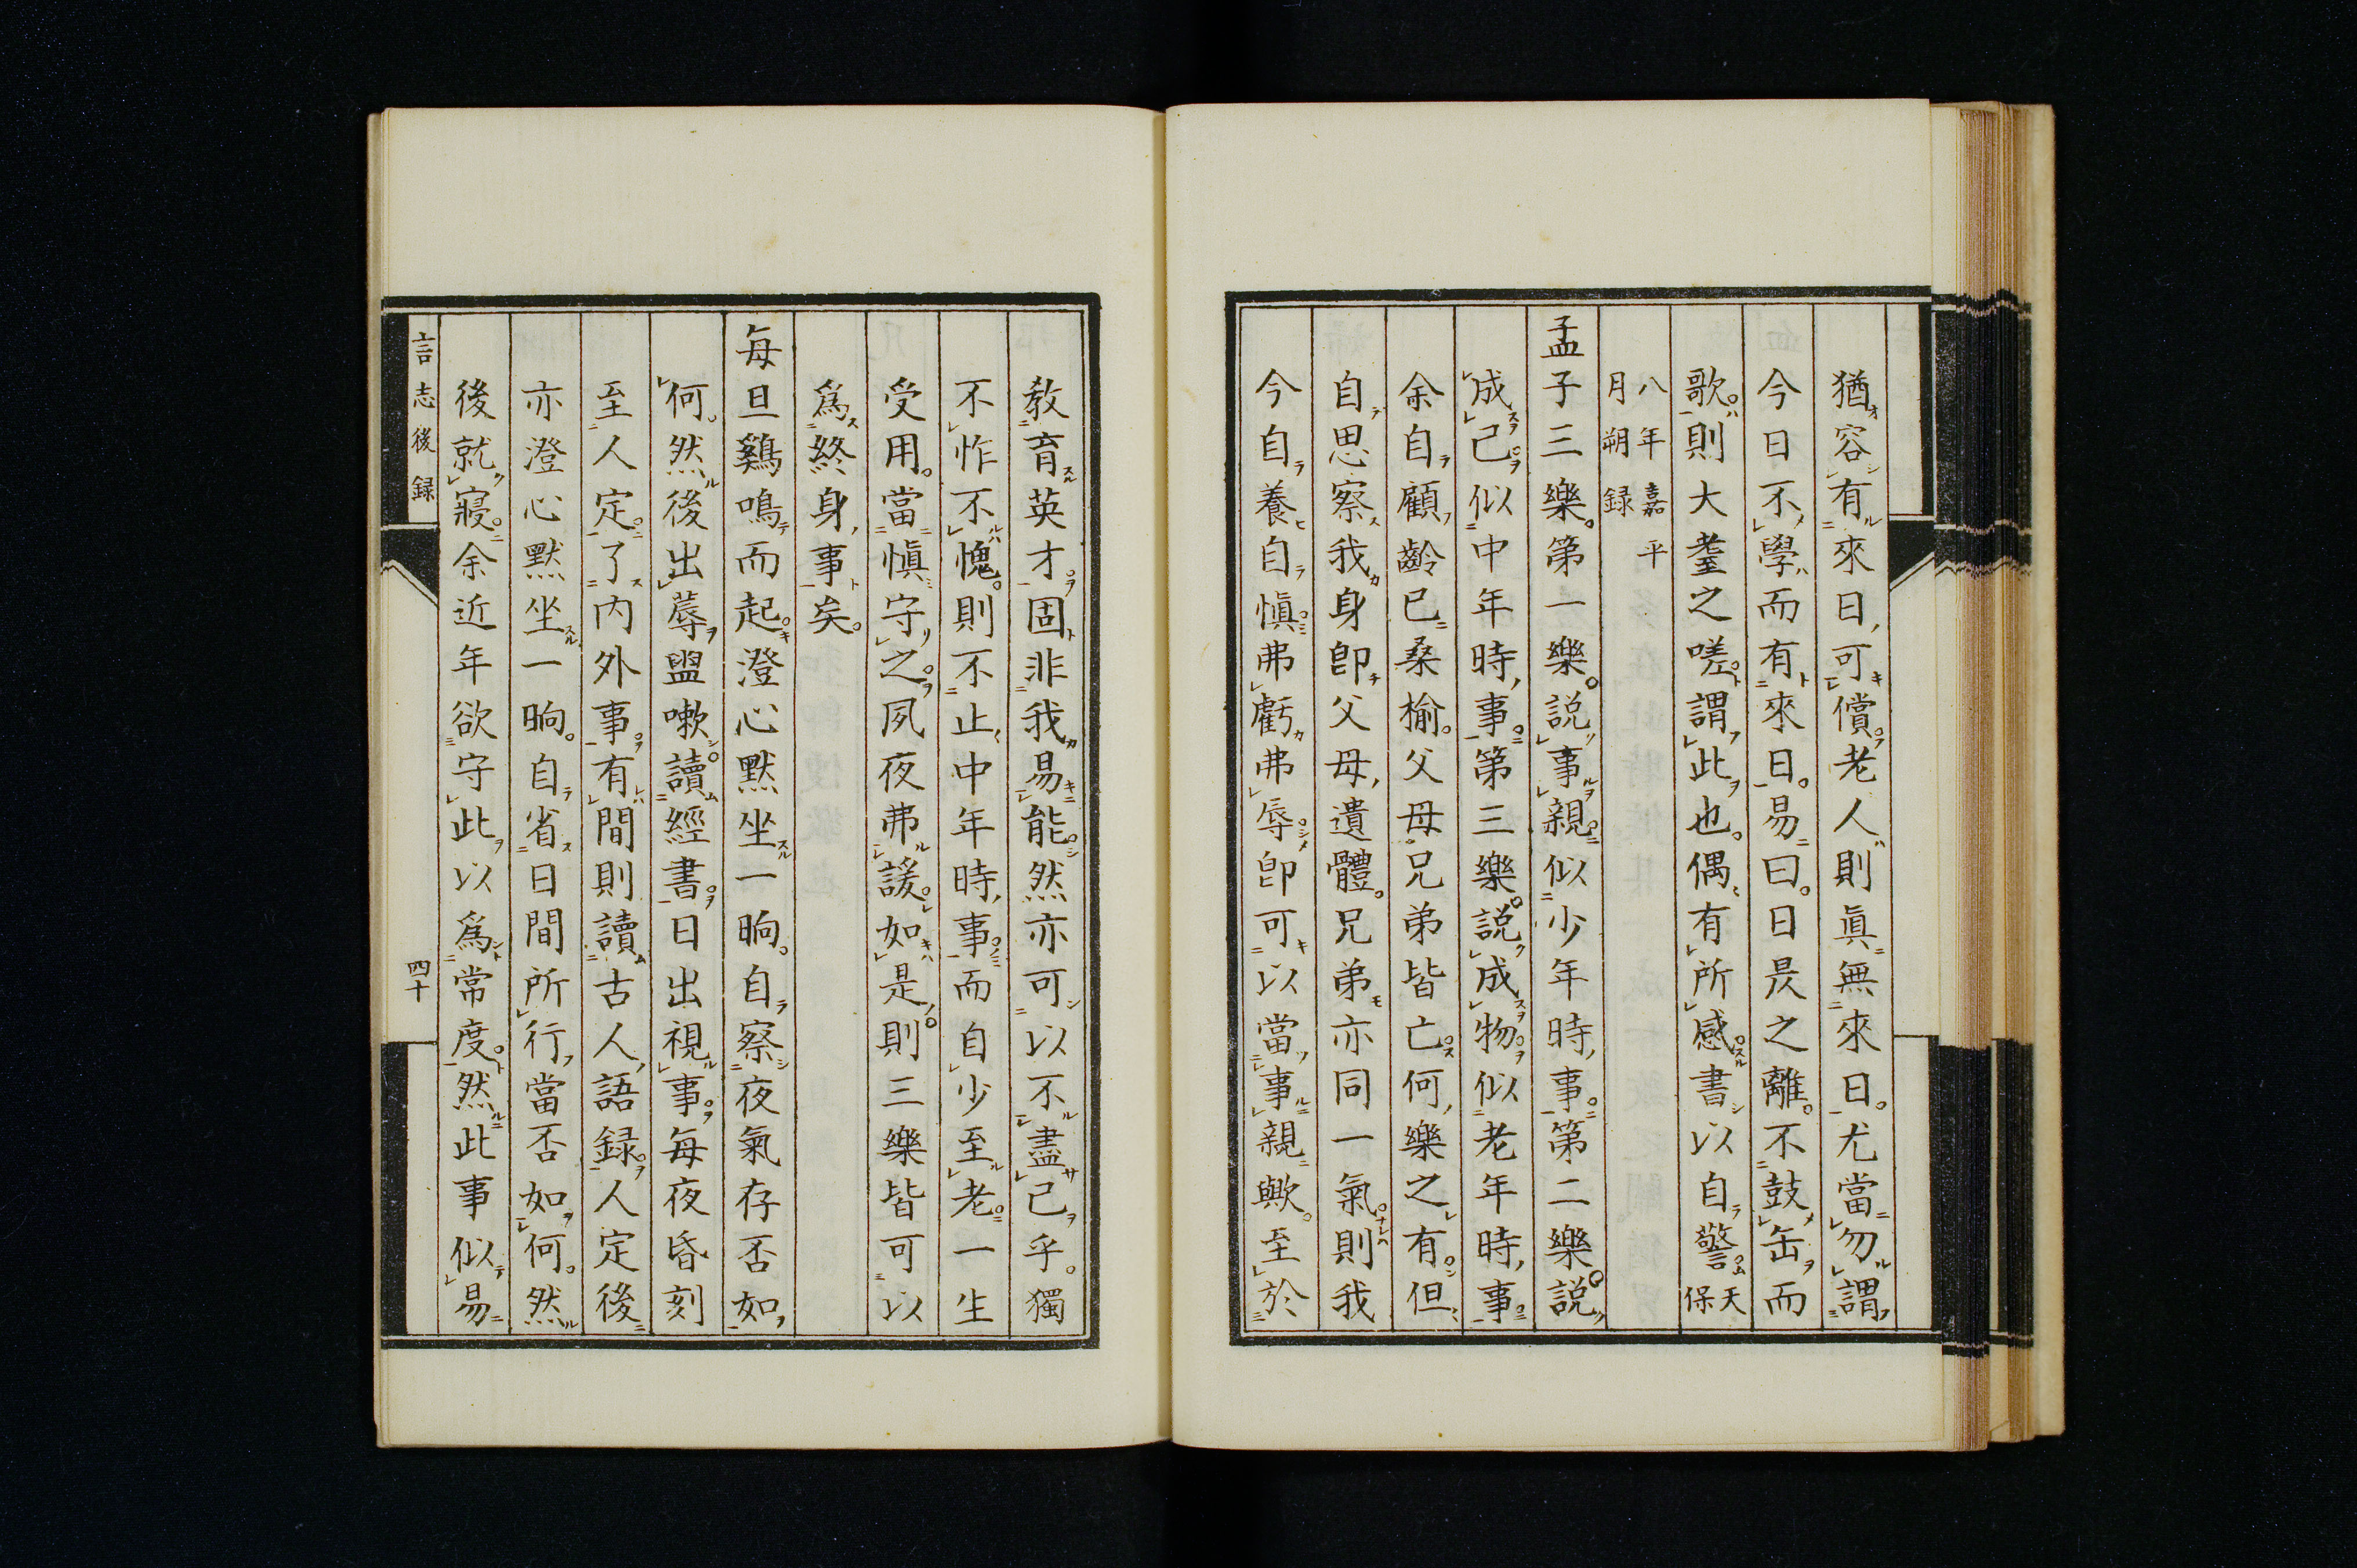 猶容有來日可償老人則眞無來日尤當勿謂
今日不學而有來日易曰日昃之離不鼓缶而
歌則大耋之嗟謂此也偶有所感書以自警天保
八年嘉平月朔録
孟子三樂第一樂説事親似少年時事第二樂説
成己似中年時事第三樂説成物似老年時事
余自顧齡已桑楡父母兄弟皆亡何樂之有但
自思察我身卽父母遺體兄弟亦同一氣則我
今自養自愼弗虧弗辱卽可以當事親歟至於
敎育英才固非我易能然亦可以不盡己乎獨
不怍不愧則不止中年時事而自少至老一生
受用當愼守之夙夜弗諼如是則三樂皆可以
爲終身事矣
毎旦鷄鳴而起澄心默坐一晌自察夜氣存否如
何然後出蓐盥嗽讀經書日出視事毎夜昏刻
至人定了内外事有間則讀古人語録人定後
亦澄心默坐一晌自省日間所行當否如何然
後就寢余近年欲守此以爲常度然此事似易
言志後録
四十